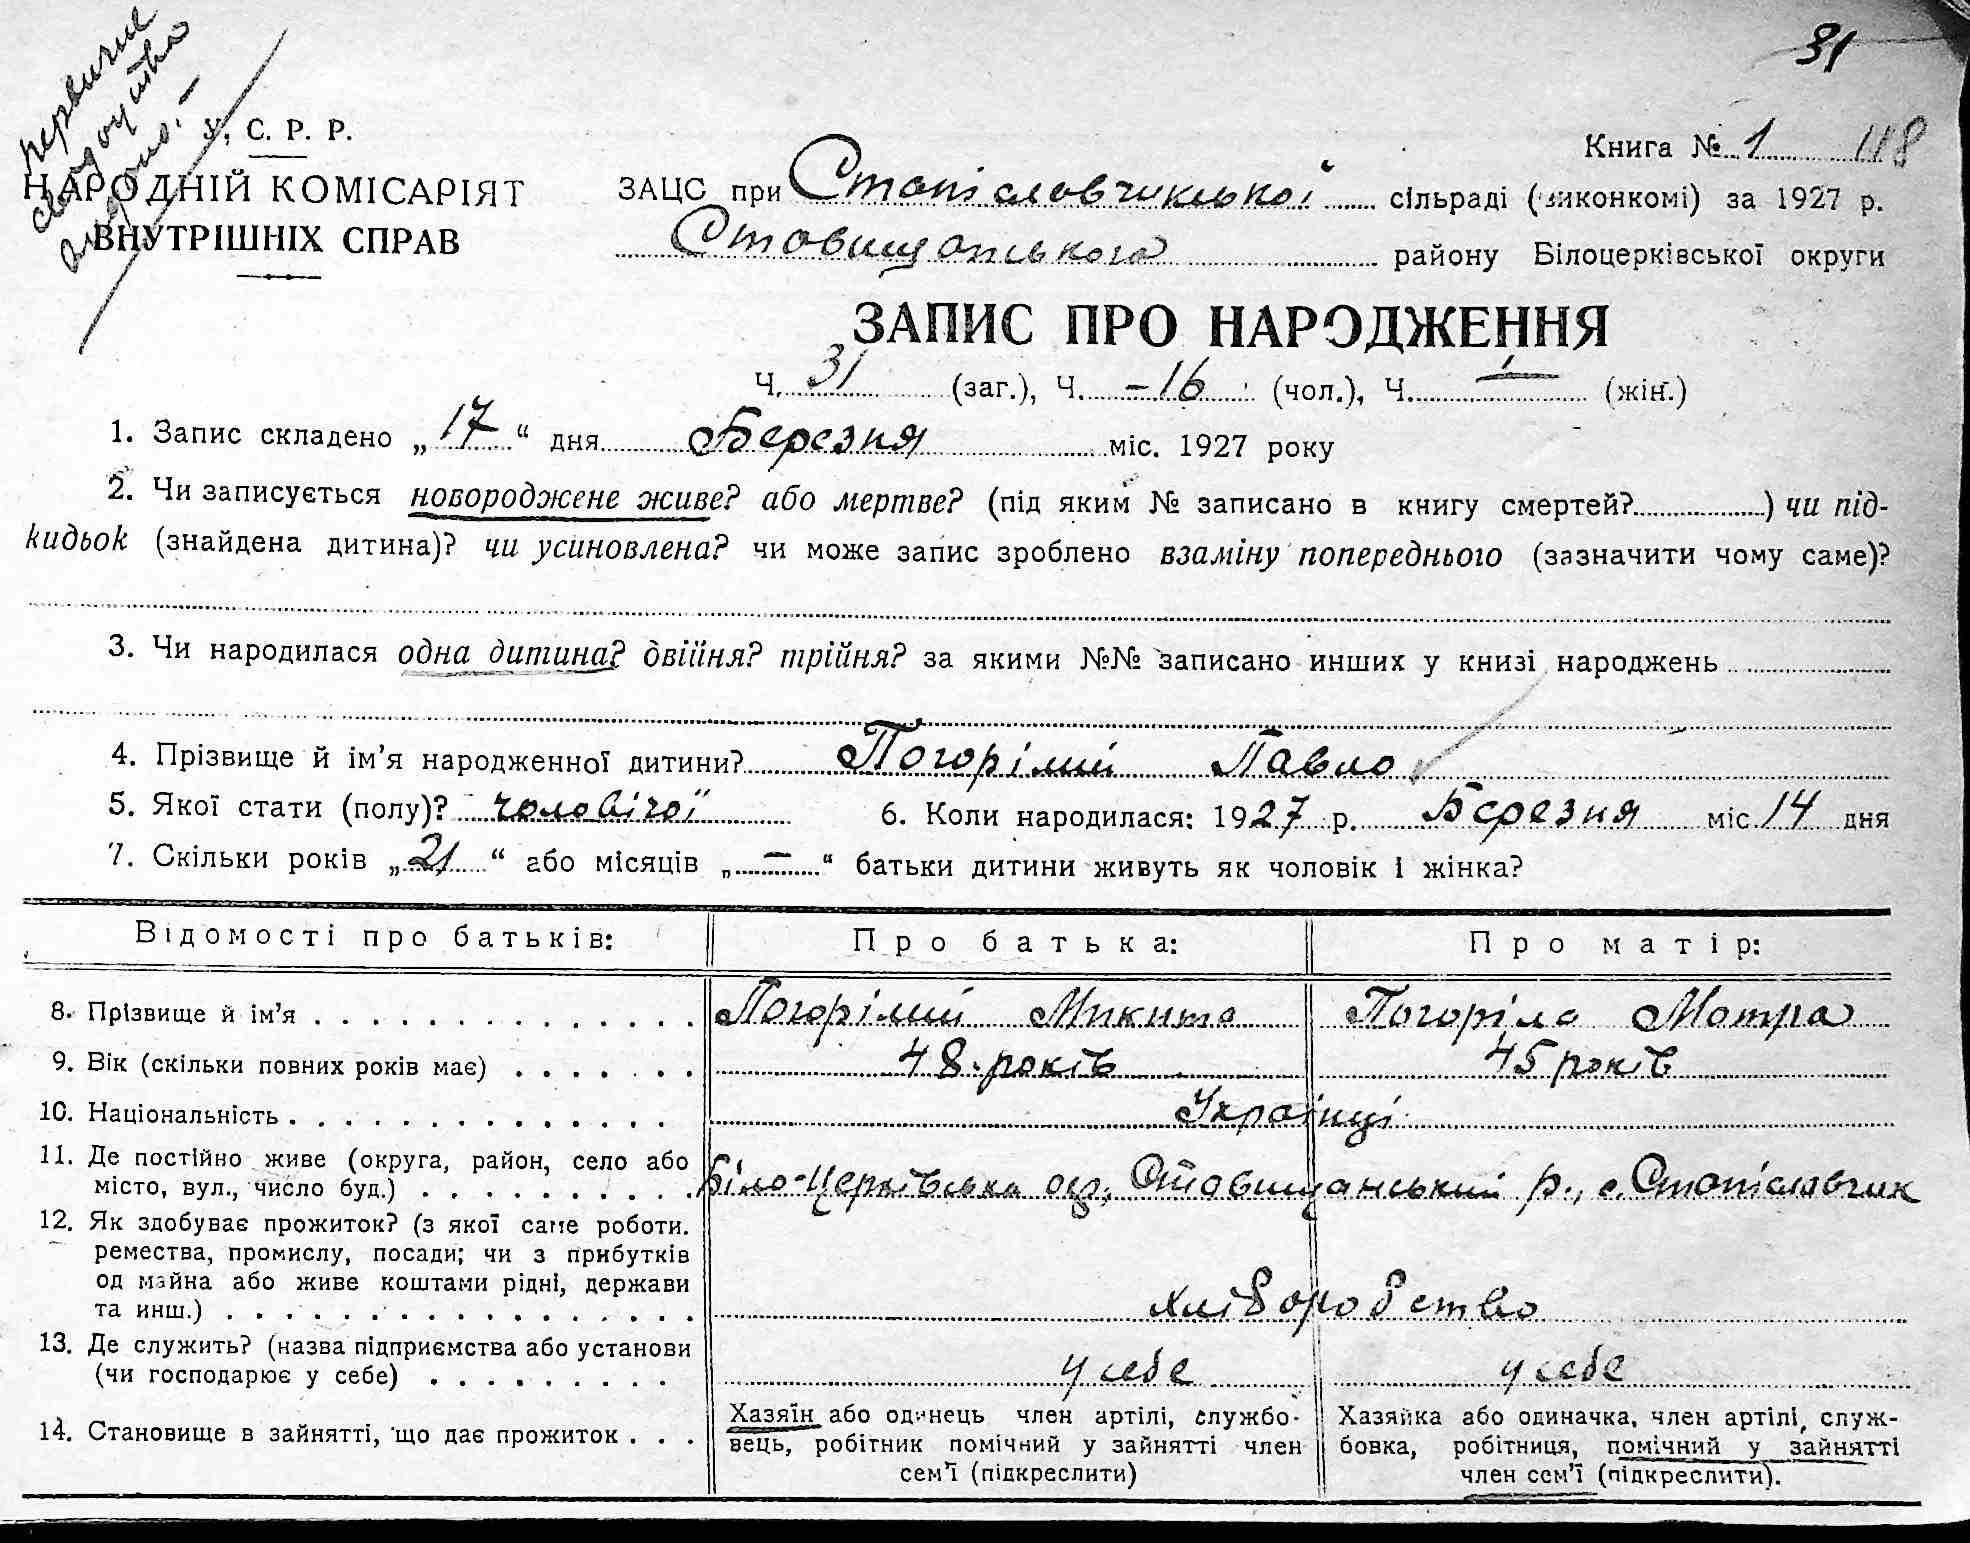 31
первичне
свідоцтво
У. С. Р. Р.
Книга № 1 118
НАРОДНІЙ КОМІСАРІЯТ
ВНУТРІШНІХ СПРАВ
ЗАЦС при Стопісловчикської сільраді (виконкомі) за 1927 р.
Ставищанського району Білоцерківської округи
ЗАПИС ПРО НАРОДЖЕННЯ
Ч. 31 (заг.), Ч. -16 (чол.), Ч. (жін.)
1. Запис складено „17“ дня Березня міс. 1927 року
2. Чи записується новороджене живе? або мертве? (під яким № записано в книгу смертей? ) чи під-
кидьок (знайдена дитина)? чи усиновлена? чи може запис зроблено взаміну попереднього (зазначити чому саме)?
3. Чи народилася одна дитина? двійня? трійня? за якими №№ записано инших у книзі народжень
4. Прізвище й ім’я народженної дитини? Погорілий Павло
5. Якої стати (полу)? чоловічої 6. Коли народилася: 1927 р. Березня міс 14 дня
7. Скільки років „21“ або місяців „—“ батьки дитини живуть як чоловік і жінка?
Відомості про батьків: Про батька: Про матір:
8. Прізвище й ім’я Погорілий Микита Погоріла Мотра
9. Вік (скільки повних років має) 48 років 45 років
10. Національність Українці
11. Де постійно живе (округа, район, село або
місто, вул., число буд.) Біло-Церківська окр., Ставищанський р., с. Стопісловчик
12. Як здобуває прожиток? (з якої саме роботи.
ремества, промислу, посади; чи з прибутків
од майна або живе коштами рідні, держави
та инш.) хліборобство
13. Де служить? (назва підприємства або установи
(чи господарює у себе) у себе у себе
14. Становище в зайнятті, що дає прожиток
Хазяїн або одинець член артілі, службо-
вець, робітник помічний у зайнятті член
сем’ї (підкреслити)
Хазяйка або одиначка, член артілі, служ-
бовка, робітниця, помічний у зайнятті
член сем’ї (підкреслити).